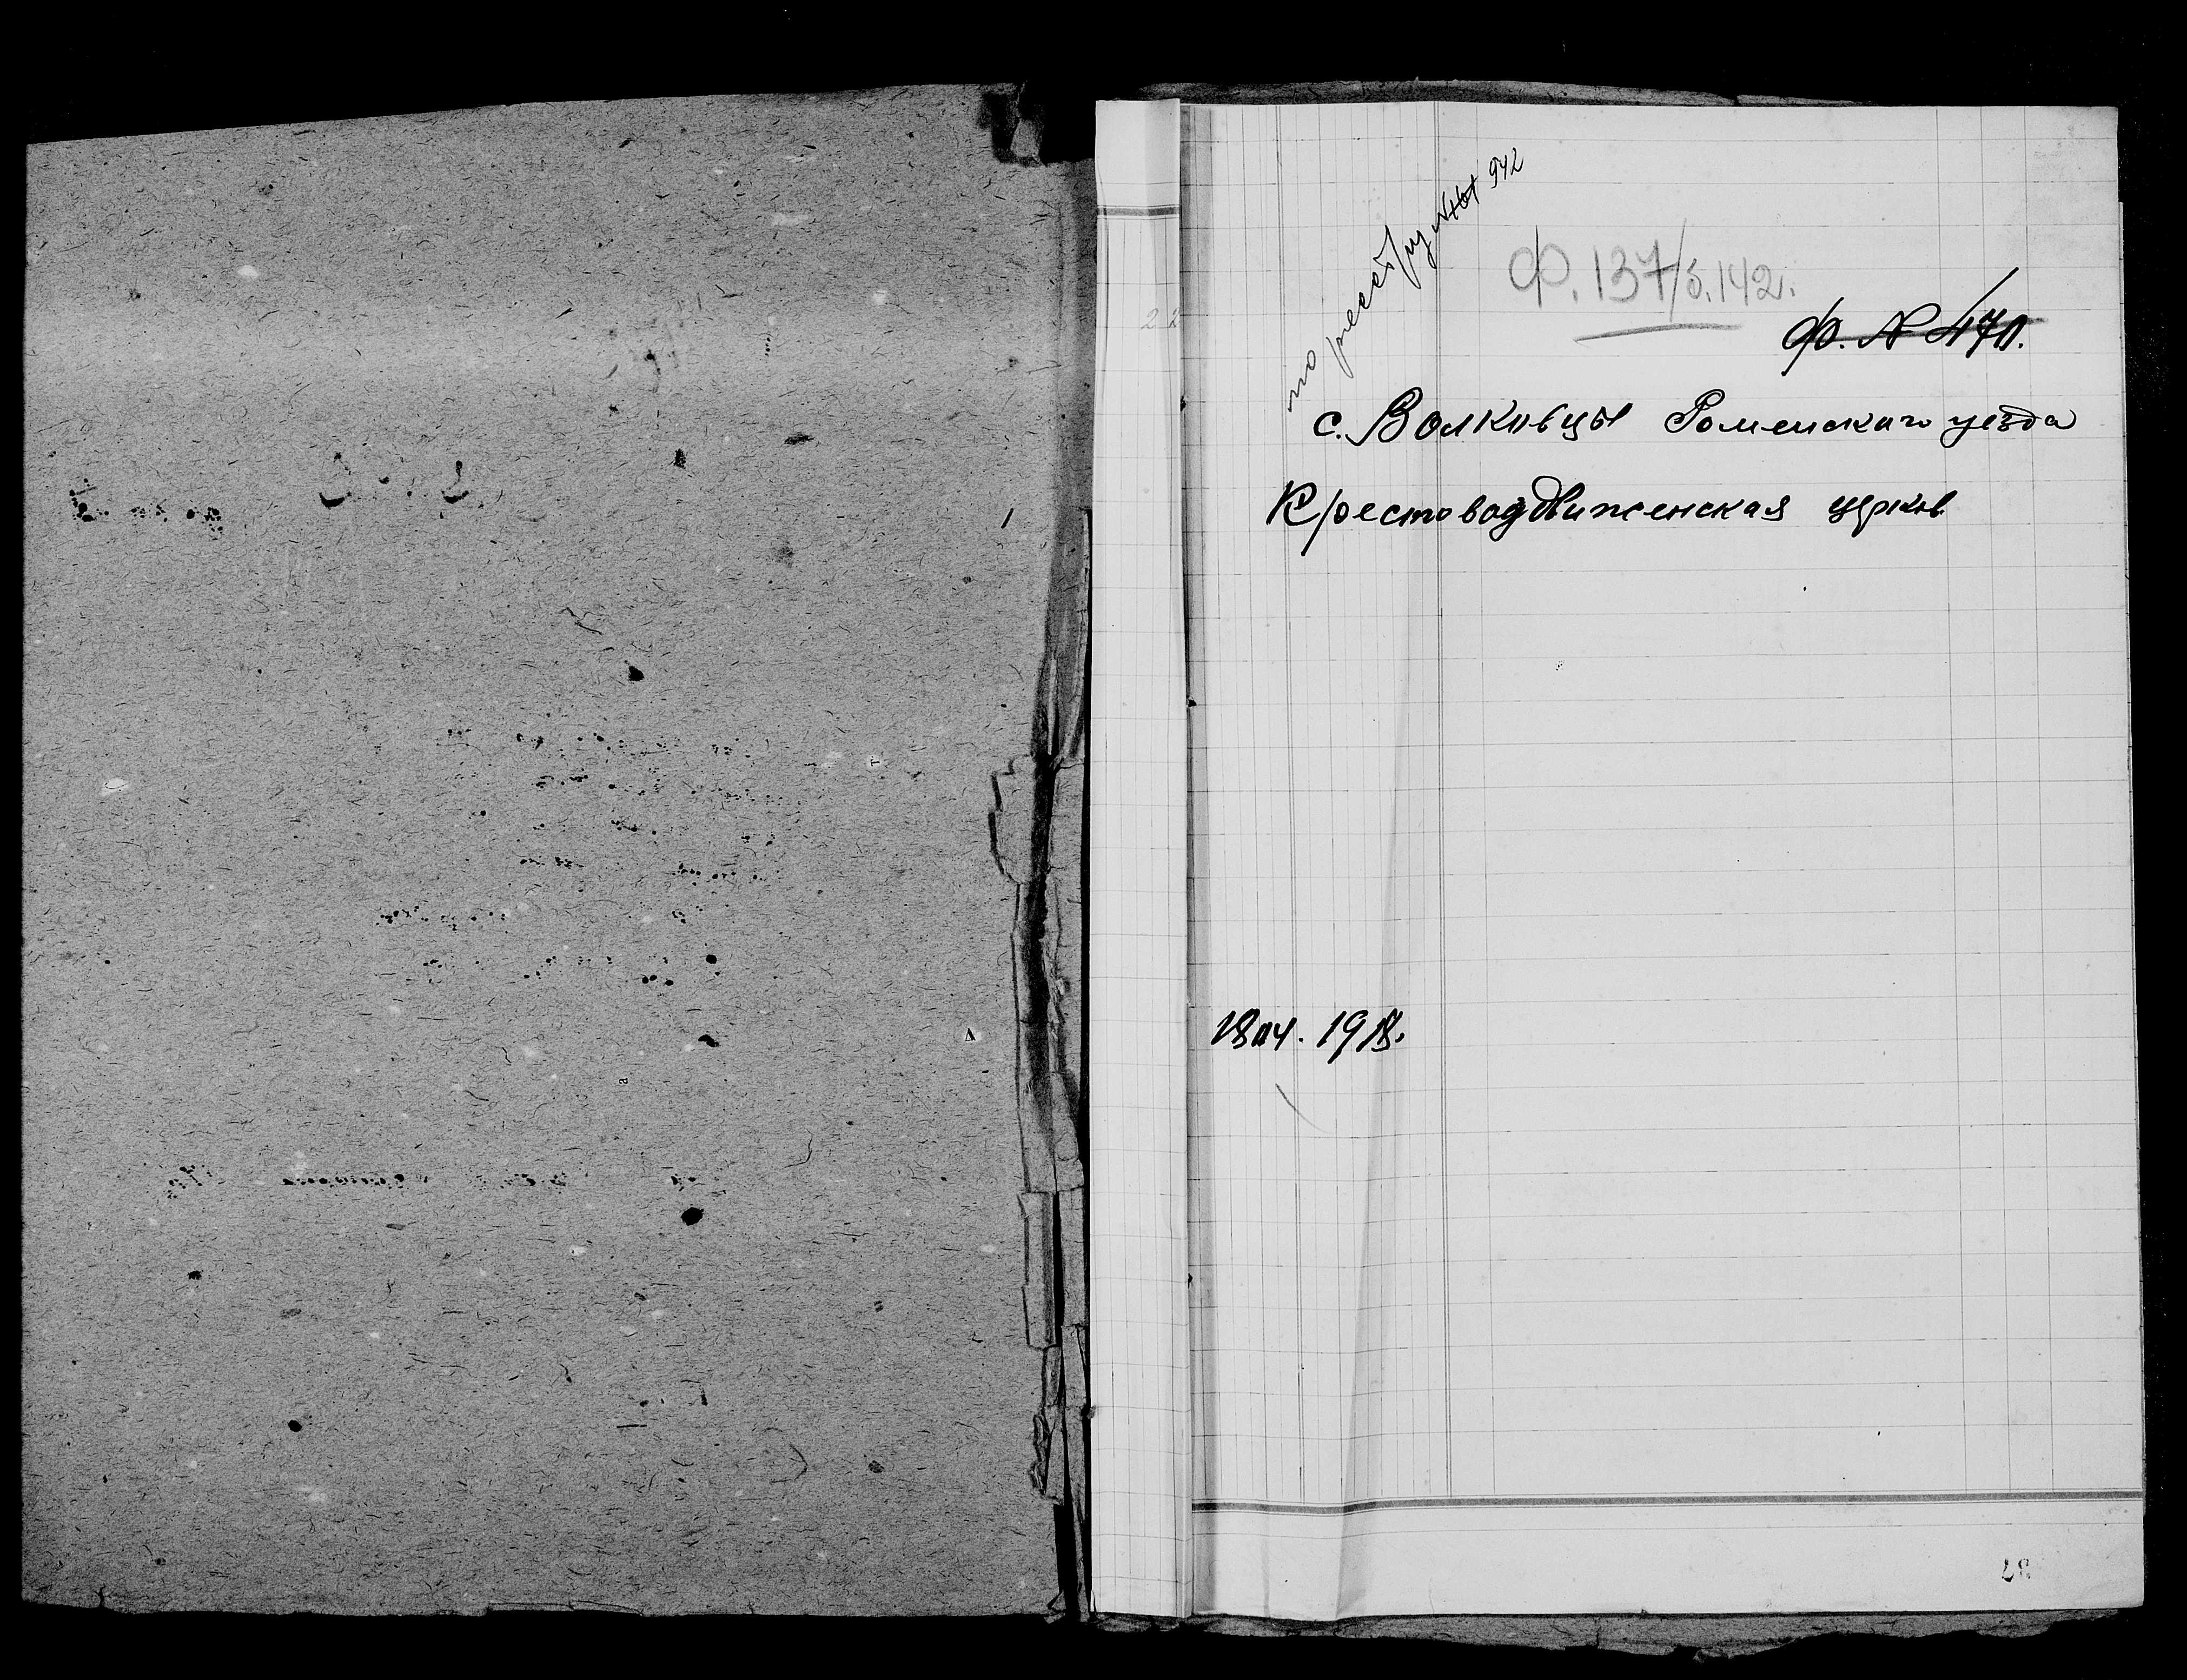 по реестру 942
Ф. 137/5.142.
Ф. № 470.
с. Волковцы Роменскаго уезда
Крестовоздвиженская церков
Нач. 1918.